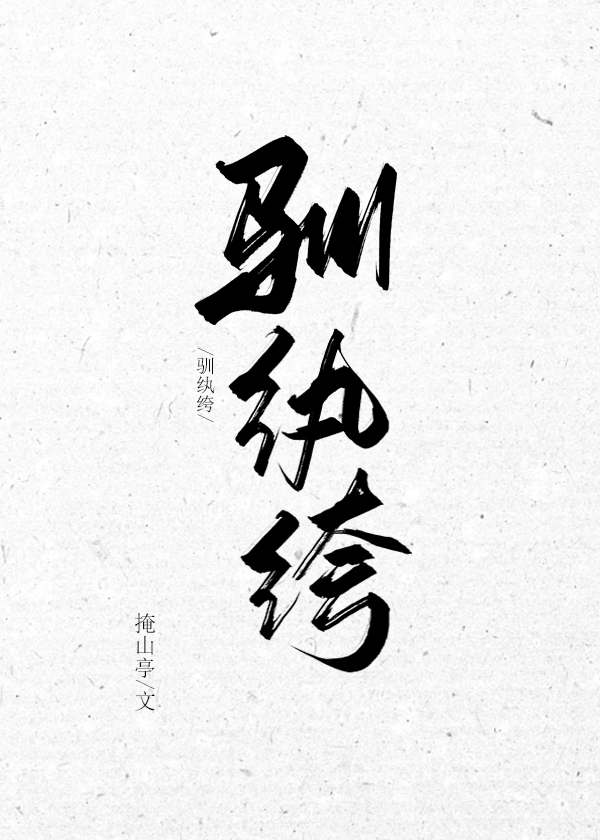 驯纨绔
/驯纨绔/
掩山亭/文